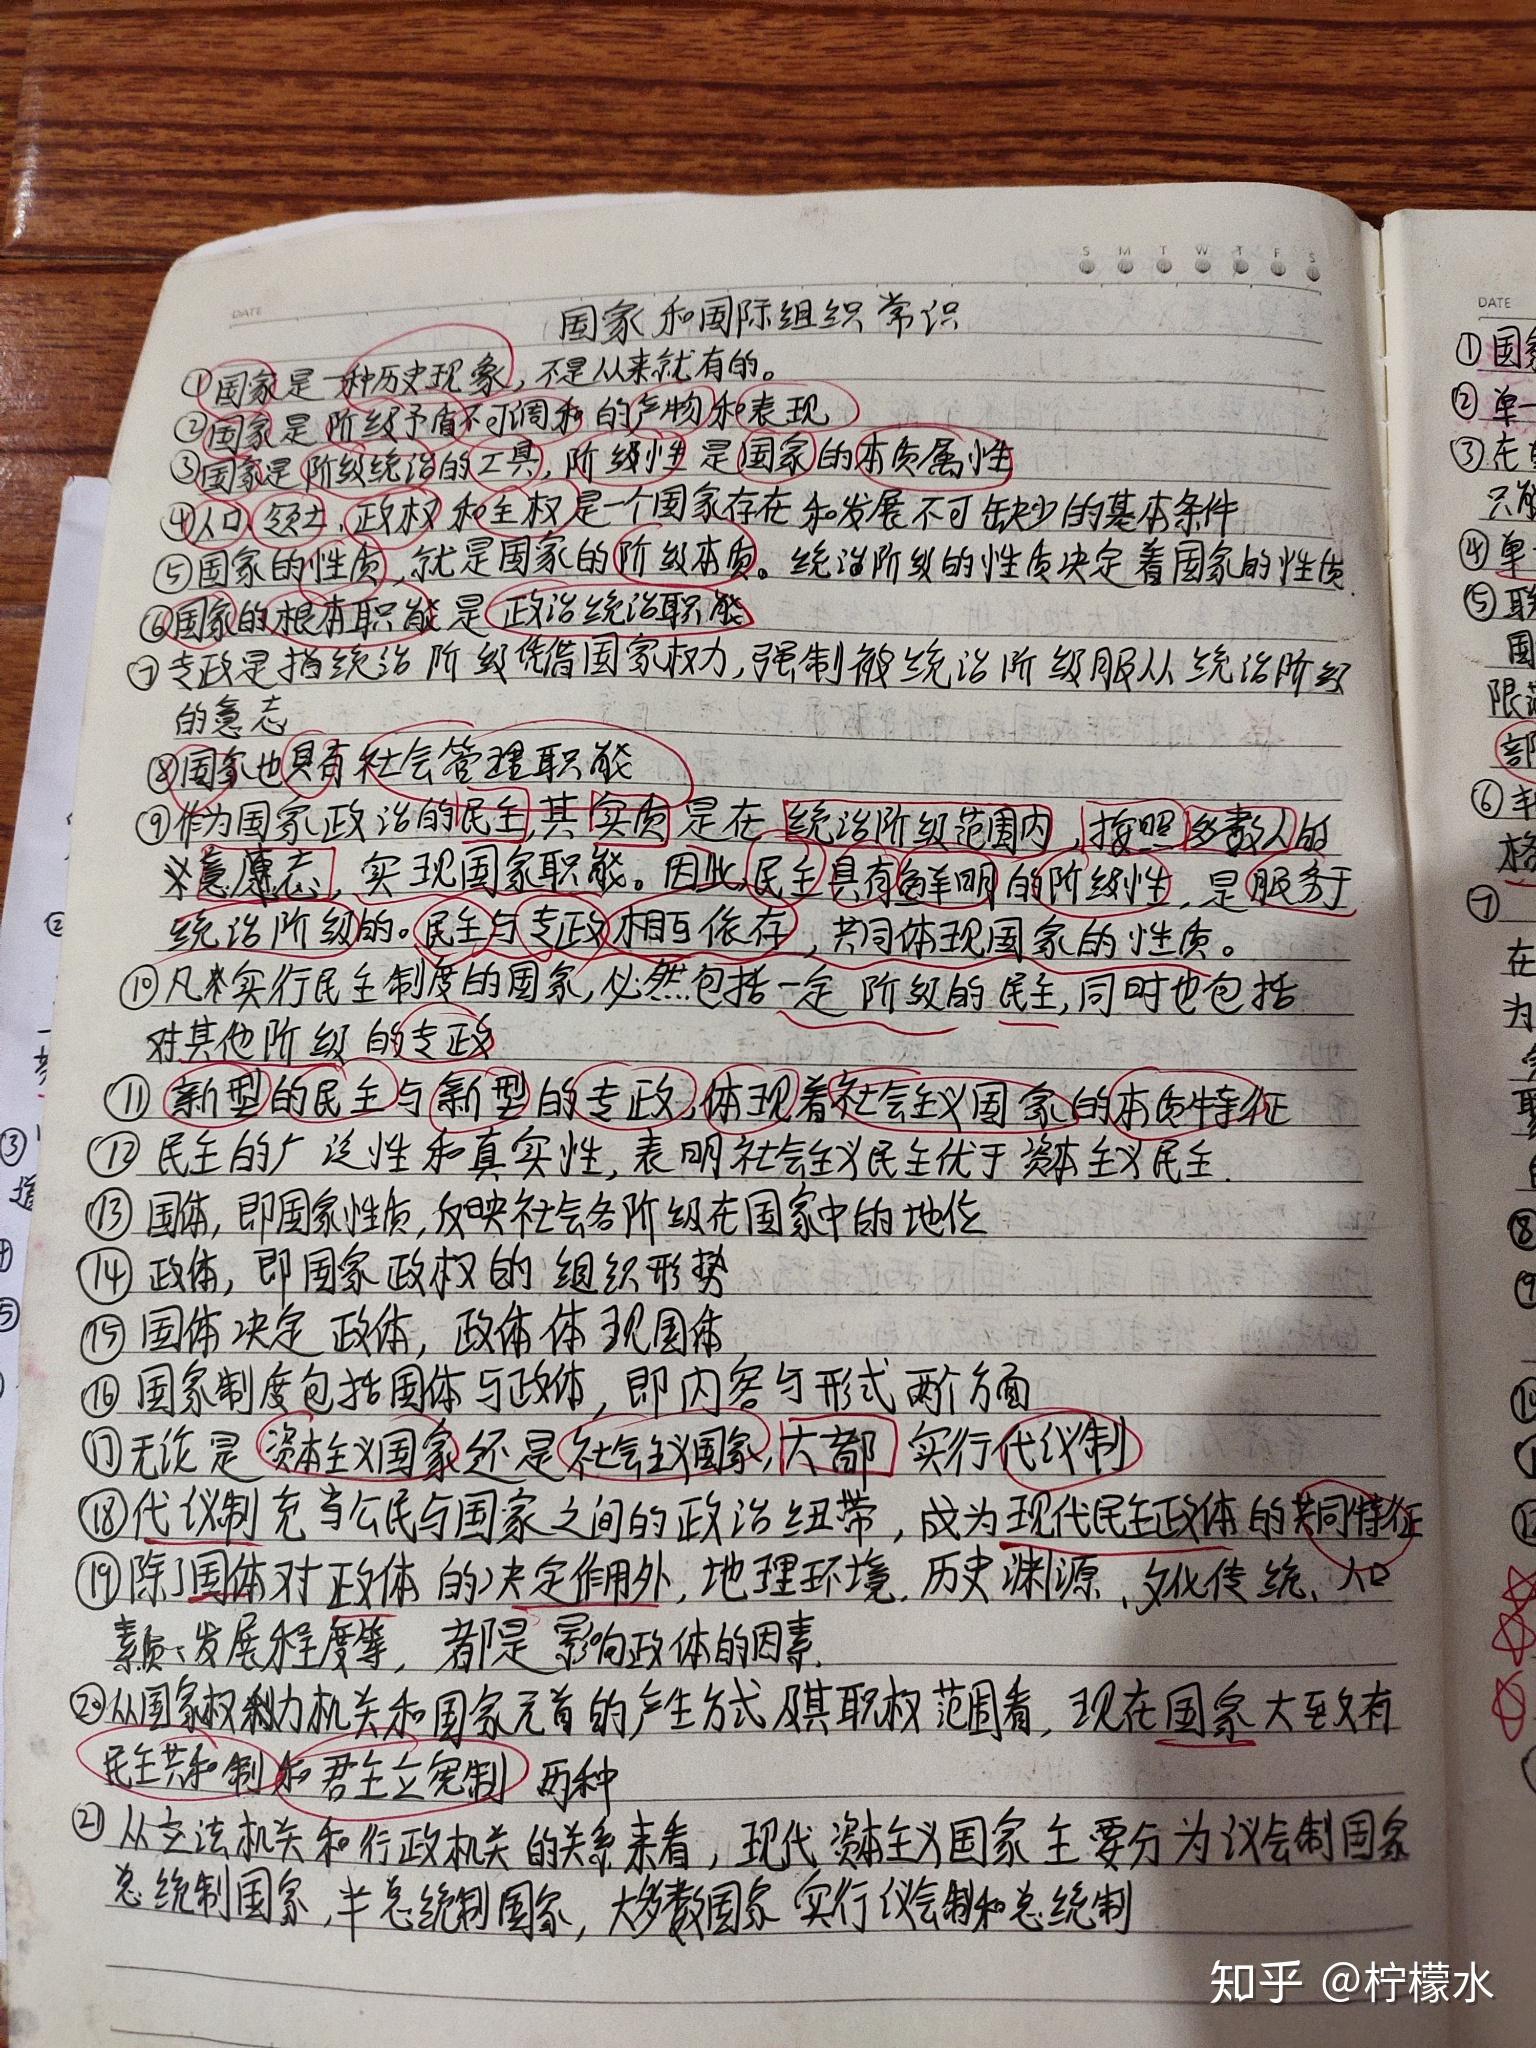 DATE
S M T W T F S
国家和国际组织常识
①国家是一种历史现象,不是从来就有的。
②国家是阶级矛盾不可调和的产物和表现
③国家是阶级统治的工具,阶级性是国家的本质属性
④人口、领土、政权和主权是一个国家存在和发展不可缺少的基本条件
⑤国家的性质,就是国家的阶级本质。统治阶级的性质决定着国家的性质.
⑥国家的根本职能是政治统治职能
⑦专政是指统治阶级凭借国家权力,强制被统治阶级服从统治阶级
的意志
⑧国家也具有社会管理职能
⑨作为国家政治的民主,其实质是在统治阶级范围内,按照多数人的
意愿志,实现国家职能。因此,民主具有鲜明的阶级性,是服务于
统治阶级的。民主与专政相互依存,共同体现国家的性质。
⑩凡实行民主制度的国家,必然包括一定阶级的民主,同时也包括
对其他阶级的专政
⑪新型的民主与新型的专政,体现着社会主义国家的本质特征
⑫民主的广泛性和真实性,表明社会主义民主优于资本主义民主.
⑬国体,即国家性质,反映社会各阶级在国家中的地位
⑭政体,即国家政权的组织形势
⑮国体决定政体,政体体现国体
⑯国家制度包括国体与政体,即内容与形式两个方面
⑰无论是资本主义国家还是社会主义国家,大都实行代议制
⑱代议制充当公民与国家之间的政治纽带,成为现代民主政体的共同特征
⑲除了国体对政体的决定作用外,地理环境.历史渊源、文化传统、人口
素质、发展程度等,都是影响政体的因素.
⑳从国家权力机关和国家元首的产生方式及其职权范围看,现在国家大至又有
民主共和制和君主立宪制两种
㉑从立法机关和行政机关的关系来看,现代资本主义国家主要分为议会制国家
总统制国家,半总统制国家,大多数国家实行议会制和总统制
DATE
①国家
②单一
③在
只能
④单一
⑤联
国
限
部
⑥
格
⑦
在
为
⑧
⑨
②
③
⑤
知乎 @柠檬水